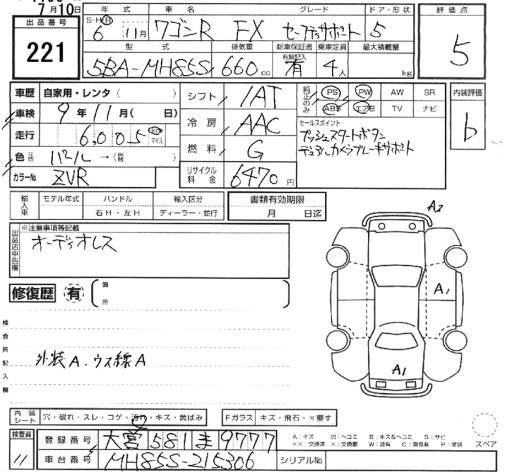 7月10日
出品番号 221
年式 車名 グレード ドア・形状 評価点
S・H・R 6 11月 ワゴンR FX セーフティサポート 5 5
型式 排気量 新車保証書 乗車定員 最大積載量
有無記入
5BA-MH85S 660cc 有 4人 kg
車歴 自家用・レンタ( )
車検 9年11月( 日)
走行 6,005
色 パール→( )
カラーNo ZVR
シフト IAT
冷房 AAC
燃料 G
リサイクル料金 6470円
純正のみ PS PW AW SR
ABS エアB TV ナビ
内装評価 b
セールスポイント
プッシュスタートボタン
デュアルカメラブレーキサポート
輸入車 モデル年式 ハンドル 輸入区分 書類有効期限
右H・左H ディーラー・並行 月 日迄
※注意事項等記載
出品店申告欄
オーディオレス
修復歴 有 ( 箇所 )
検査員記入欄
外装A、ウス線A
A2
A1
A1
内装シート 穴・破れ・スレ・コゲ・汚れ・キズ・黄ばみ Fガラス キズ・飛石・×要す
検査員 11
登録番号 大宮 581 ま 9777
A:キズ U:凹 E:エクボ B:キズ&ヘコミ S:サビ
××:交換済 X:交換要 W:波有 C:腐食 P:塗装
スペア
車台番号 MH85S-215306 シリアルNo.